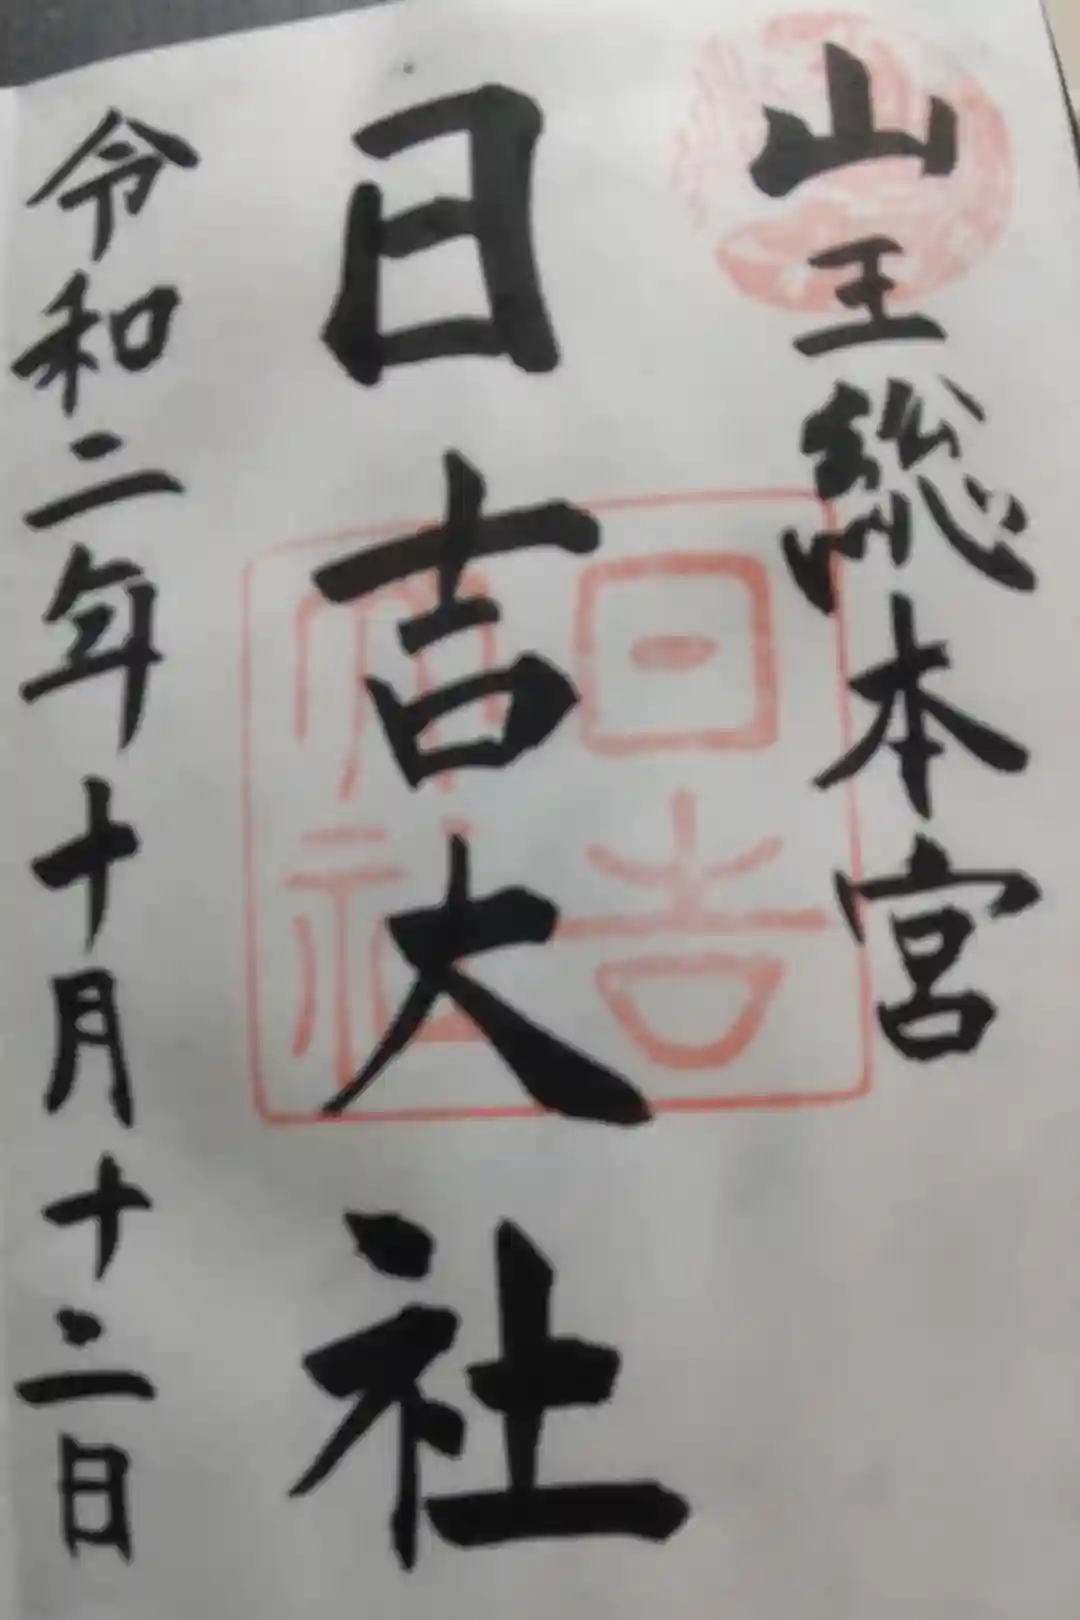 山王総本宮
日吉大社
令和二年十月十二日
日吉
大社